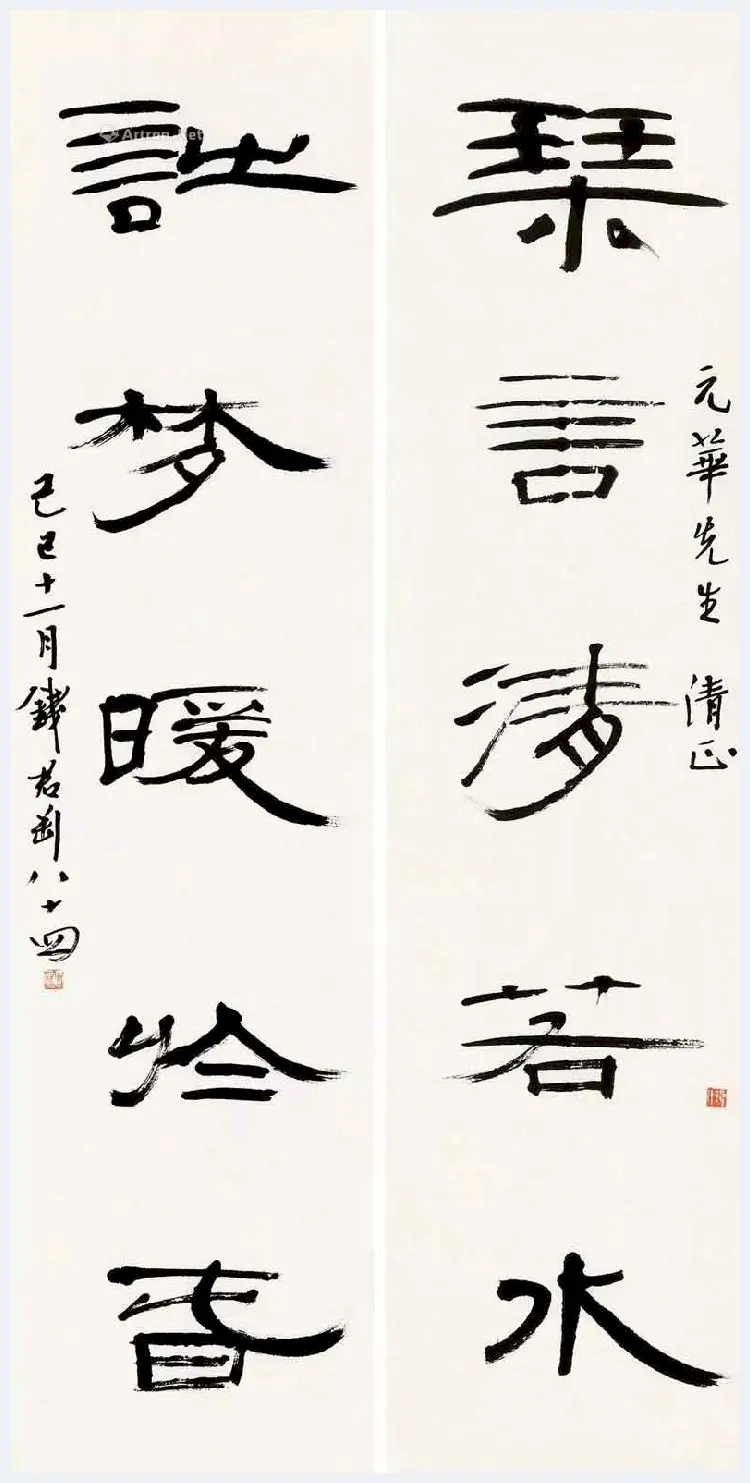 元華先生 清正
琹言清若水
詩梦暖於香
己巳十一月錢君匋八十四
Artron.Net